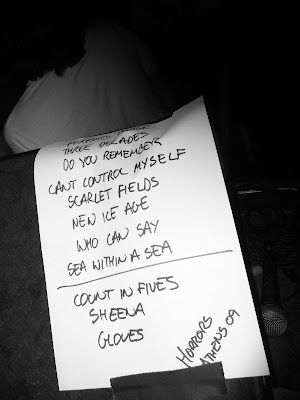 THREE DECADES
DO YOU REMEMBER
CANT CONTROL MYSELF
SCARLET FIELDS
NEW ICE AGE
WHO CAN SAY
SEA WITHIN A SEA
COUNT IN FIVES
SHEENA
GLOVES
HORRORS
ATHENS 09